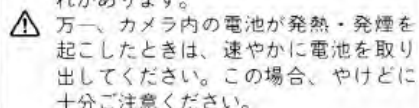 れがあります。
万一、カメラ内の電池が発熱・発煙を
起こしたときは、速やかに電池を取り
出してください。この場合、やけどに
十分ご注意ください。